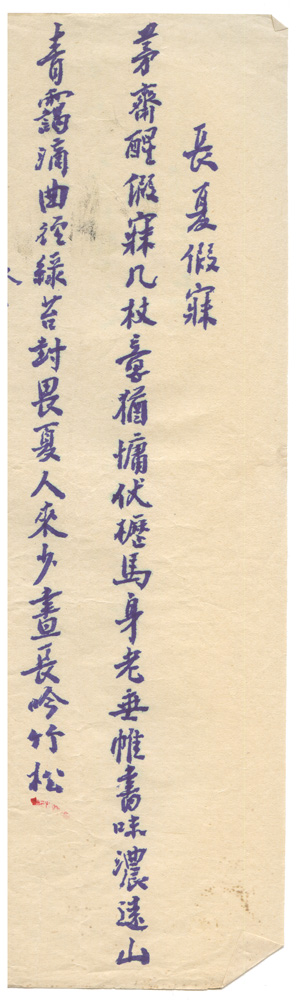 長夏假寐
茅齋醒假寐几杖意猶慵伏櫪馬身老垂帷書味濃遠山
青靄滴曲徑綠苔封畏夏人來少晝長吟竹松